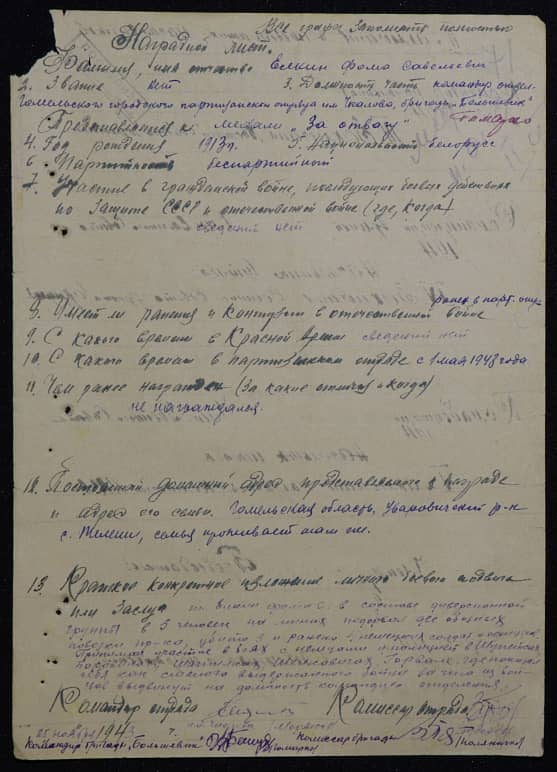 Все графы заполнять полностью
Наградной лист.
Фамилия, имя отчество Елкин Фома Савельевич
2. Звание нет 3. Должность, часть командир отдел.
Гомельского городского партизанского отряда им. Чкалова, бригады „Большевик"
Представляется к медали „За отвагу"
4. Год рождения 1913 г. 5. Национальность белорусс
6. Партийность беспартийный
7. Участие в гражданской войне, последующих боевых действиях
по защите СССР и отечественной войне (где, когда)
сведений нет
ранен в парт. отр.
8. Имеет ли ранения и контузии в отечественной войне
9. С какого времени в Красной Армии сведений нет
10. С какого времени в партизанском отряде с 1 мая 1943 года
11. Чем ранее награжден (за какие отличия и когда)
не награждался.
12. Постоянный домашний адрес представляемого к награде
и адрес его семьи. Гомельская область, Уваровичский р-н
с. Телеши, семья проживает там же.
13. Краткое конкретное изложение личного боевого подвига
или заслуг
группы в 5 человек на минах подорвал две обозных
повозки пр-ка, убито 3 и ранено 4 немецких солдат
принимал участие в боях с немцами
себя как смелого выдержанного бойца
был выдвинут на должность командира отделения.
Командир отряда Комиссар отряда
25 ноября 1943 г.
Командир бригады „Большевик" Комиссар бригады